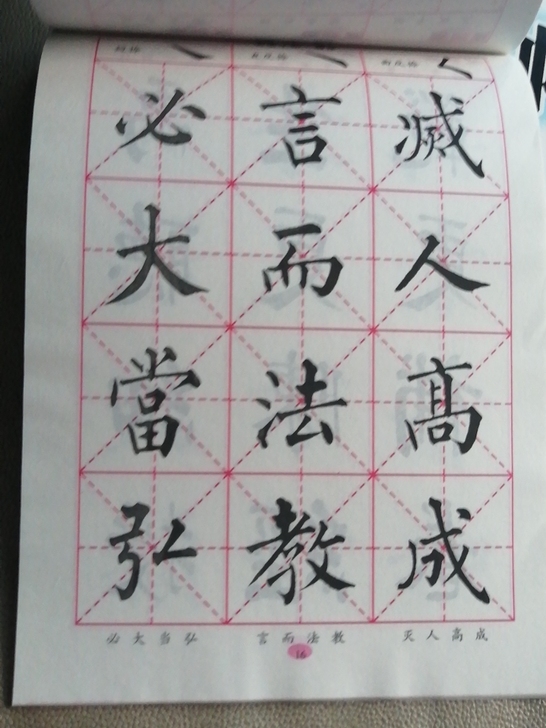 滅人髙成
言而法教
必大當弘
必大当弘
言而法教
灭人高成
16